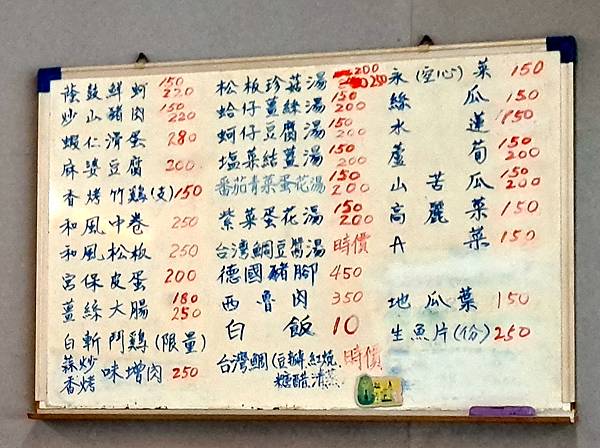 蔭鼓鮮蚵 150 220
炒山豬肉 150 220
蝦仁滑蛋 280
麻婆豆腐 200
香烤竹雞(支) 150
和風中卷 250
和風松板 250
宮保皮蛋 200
薑絲大腸 180 250
白斬鬥雞(限量)
蒜炒 香烤 味增肉 250
松板珍菇湯 200 250
蛤仔薑絲湯 150 200
蚵仔豆腐湯 150 200
塩菜結薑湯 150 200
番茄青菜蛋花湯 150 200
紫菜蛋花湯 150 200
台灣鯛豆腐湯 時價
德國豬腳 450
西魯肉 350
白飯 10
台灣鯛(豆瓣.紅燒. 糖醋.清蒸) 時價
永(空心)菜 150
絲瓜 150
水蓮 150
蘆筍 150 200
山苦瓜 150 200
高麗菜 150
A菜 150
地瓜葉 150
生魚片(份) 250